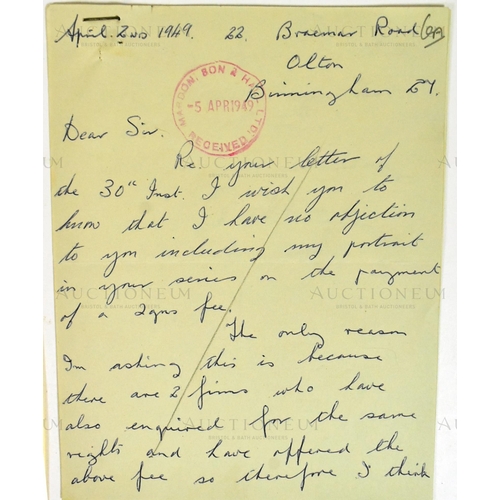 April 2nd 1949. 22 Braemar Road
Olton
Birmingham 27.
MARDON, SON & HALL, LTD.
-5 APR 1949
RECEIVED
Dear Sir.
Re your letter of
the 30th Inst. I wish you to
know that I have no objection
to you including my portrait
in your series on the payment
of a 2gns fee.
The only reason
I'm asking this is because
there are 2 firms who have
also enquired for the same
rights and have offered the
above fee so therefore I think
AUCTIONEUM
BRISTOL & BATH AUCTIONEERS